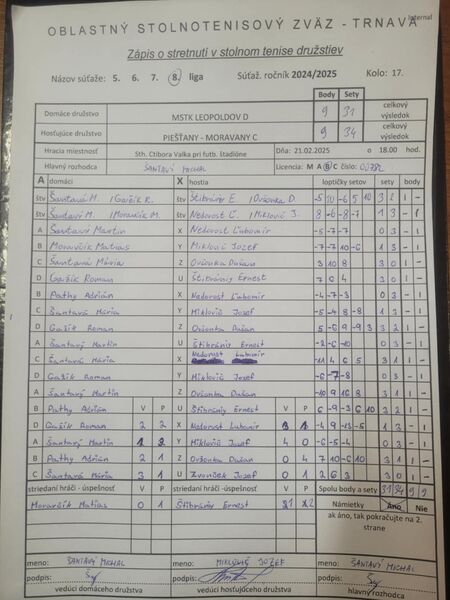 Internal
OBLASTNÝ STOLNOTENISOVÝ ZVÄZ - TRNAVA
Zápis o stretnutí v stolnom tenise družstiev
Názov súťaže: 5. 6. 7. 8. liga Súťaž. ročník 2024/2025 Kolo: 17.
Body Sety
Domáce družstvo MSTK LEOPOLDOV D 9 31 celkový výsledok
Hosťujúce družstvo PIEŠŤANY - MORAVANY C 9 34 celkový výsledok
Hracia miestnosť Sth. Ctibora Valka pri futb. štadióne Dňa: 21.02.2025 o 18.00 hod.
Hlavný rozhodca ŠANTAVÝ MICHAL Licencia: M A B C číslo:
A domáci X hostia loptičky setov sety body
štv Šantavá M. / Gažík R. štv Štibrányi E / Ovšonka D. -5 10 -6 5 10 3 2 1 -
štv Šantavý M. / Moravčík M. štv Nedorost Ľ. / Miklovič J. 8 -6 -8 -7 1 3 - 1
A Šantavý Martin X Nedorost Ľubomír -5 -7 -7 0 3 - 1
B Moravčík Matias Y Miklovič Jozef -7 -7 10 -6 1 3 - 1
C Šantavá Mária Z Ovšonka Dušan 3 10 8 3 0 1 -
D Gažík Roman U Štibrányi Ernest 7 6 4 3 0 1 -
B Pathy Adrián X Nedorost Ľubomír -4 -7 -3 0 3 - 1
C Šantavá Mária Y Miklovič Jozef -5 -4 8 -8 1 3 - 1
D Gažík Roman Z Ovšonka Dušan 5 -6 9 -9 3 3 2 1 -
A Šantavý Martin U Štibrányi Ernest -2 -6 -10 0 3 - 1
C Šantavá Mária X Nedorost Ľubomír -11 4 6 5 3 1 1 -
D Gažík Roman Y Miklovič Jozef -6 -7 -8 0 3 - 1
A Šantavý Martin Z Ovšonka Dušan -10 9 16 8 3 1 1 -
B Pathy Adrián V P U Štibrányi Ernest V P 6 -9 -3 6 10 3 2 1 -
D Gažík Roman 2 2 X Nedorost Ľubomír 3 1 -4 9 -13 -5 1 3 - 1
A Šantavý Martin Y Miklovič Jozef 4 0 -6 -5 -4 0 3 - 1
B Pathy Adrián 2 1 Z Ovšonka Dušan 0 4 7 10 -6 10 3 1 1 -
C Šantavá Mária 3 1 U Zvonček Jozef 0 1 2 6 3 3 0 1 -
striedaní hráči - úspešnosť V P striedaní hráči -úspešnosť V P Spolu body a sety 31 34 9 9
Moravčík Matias 0 1 Štibrányi Ernest Námietky Áno Nie
ak áno, tak pokračujte na 2. strane
meno: ŠANTAVÝ MICHAL meno: MIKLOVIČ JOZEF meno: ŠANTAVÝ MICHAL
podpis: podpis: podpis:
vedúci domáceho družstva vedúci hosťujúceho družstva hlavný rozhodca